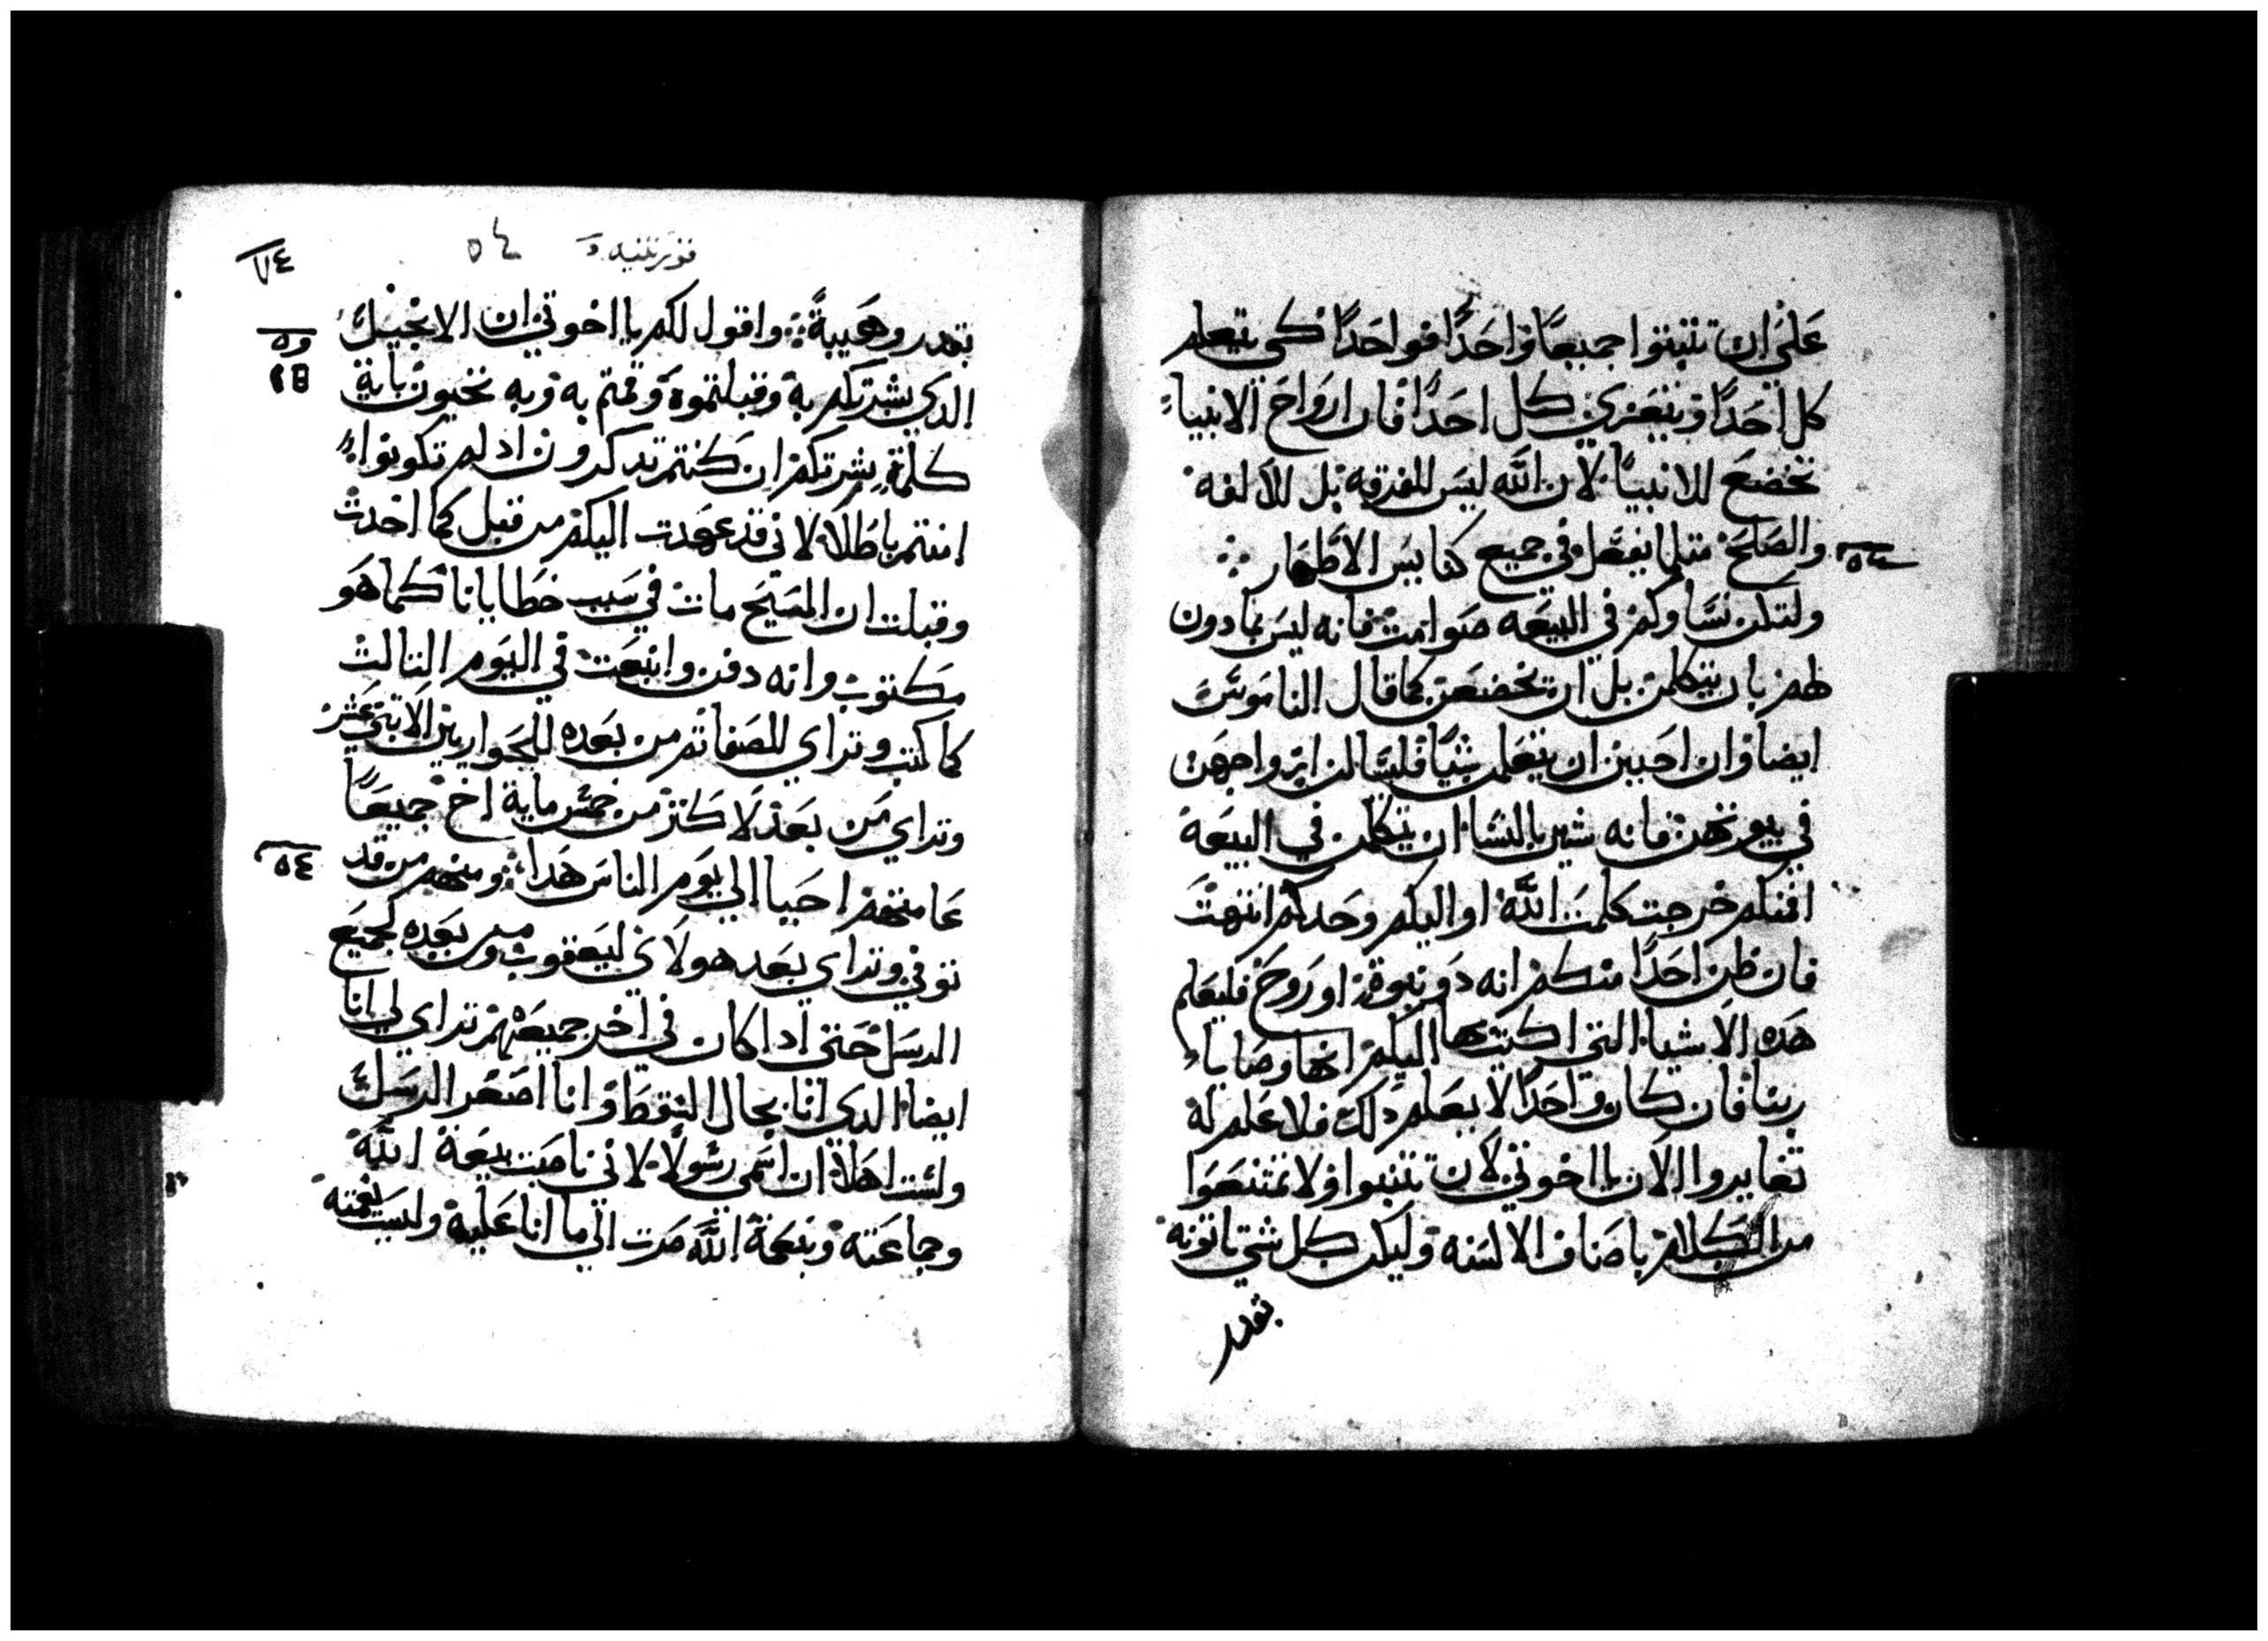 علي ان تتنبوا جميعا واحدا فواحدا كي يتعلم
كل احدا ويتعزي كل احدا فان ارواح الانبياء
تخضع للانبيا لان الله ليس للفرقه بل للالفه
والصلح متلما يفعل في جميع كنايس الاطهار
ولتكن نساوكم في البيعه صوامت فانه ليس بمادون
لهم بان يتكلمن بل ان يخضعن كما قال الناموس
ايضا وان احبين ان يتعلمن شيا فليسالن ازواجهن
في بيوتهن فانه شين بالنسا ان يتكلمن في البيعة
افمنكم خرجت كلمت الله او اليكم وحدكم انتهت
فان ظن احدا منكم انه دو نبوة او روح فليعلم
هده الاشيا التي اكتبها اليكم انها وصاياء
ربنا فان كان واحدا لا يعلم دلك فلا علم له
تغايروا الان يا اخوتي لان تتنبوا ولا تمتنعوا
من الكلام باصناف الالسنه وليكن كل شي تاتونه
بقدر
قورنتيه
٧٤
بقدر وهيبة واقول لكم يا اخوتي ان الانجيل
الدي بشرتكم به وقبلتموه وقمتم به وبه تحيون باية
كلمة بشرتكم ان كنتم تدكرون اد لم تكونوا
امنتم باطلا لاني قد عهدت اليكم من قبل كما اخدت
وقبلت ان المسيح مات في سبب خطايانا كما هو
مكتوب وانه دفن وانبعت في اليوم التالت
كما كتب وتراي للصفا تم من بعده للحواريين الاتني عشر
وتراي من بعد لاكتر من خمس ماية اخ جميعا
عامتهم احيا الي يوم الناس هدا ومنهم من قد
توفي وتراي بعد هولاي ليعقوب ومن بعده لجميع
الرسل حتي ادا كان في اخر جميعهم تراي لي انا
ايضا الدي انا بحال السقط وانا اصغر الرسل
ولست اهلا ان اسمي رسولا لاني ناصبت بيعة الله
وجماعته وبنعمة الله صرت الي ما انا عليه وليست نعمته